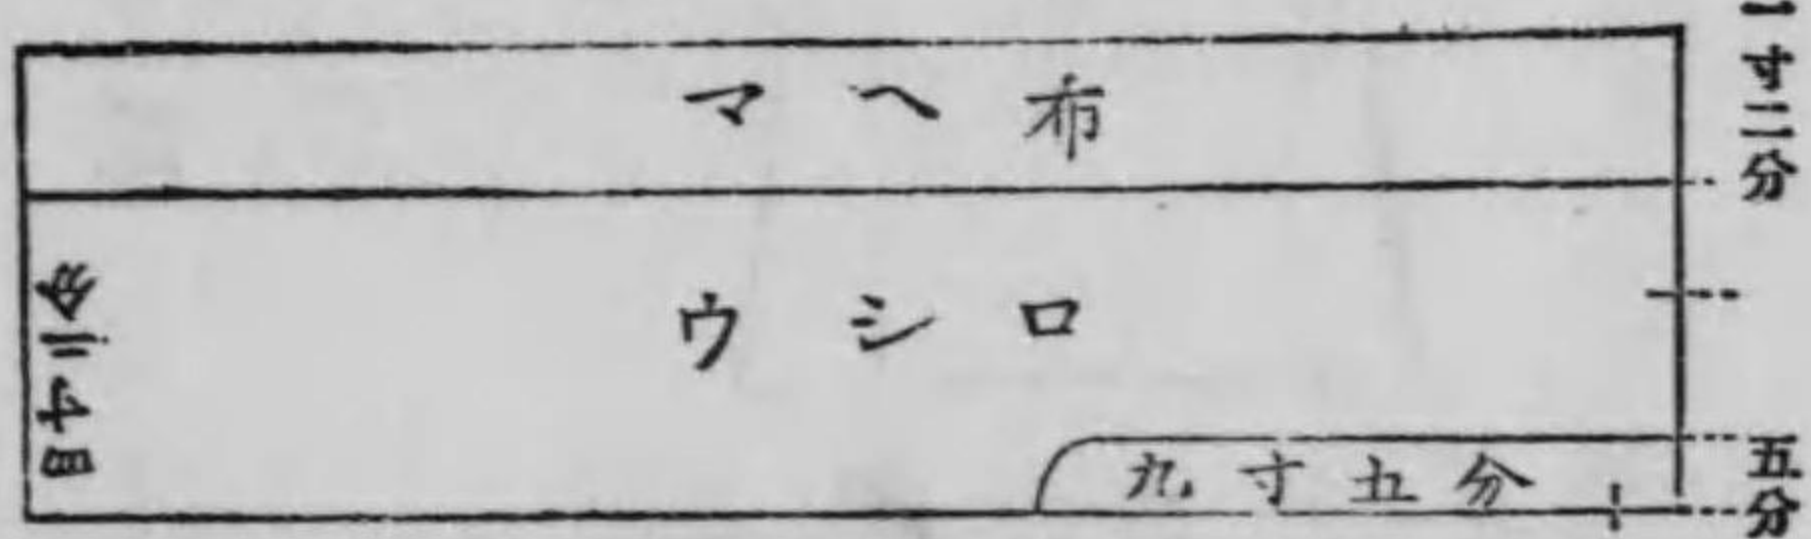 マヘ布
一寸二分
ウシロ
四寸二分
九寸五分
五分